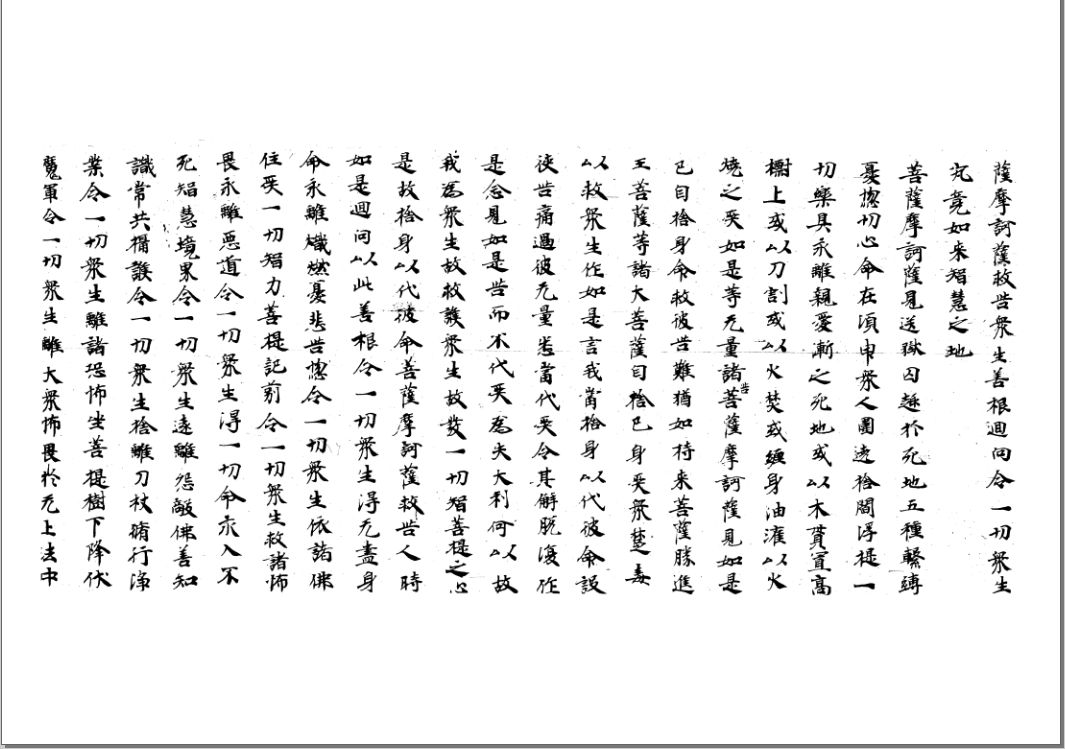 薩摩訶薩救苦衆生善根迴向令一切衆生
究竟如来智慧之地
菩薩摩訶薩見送獄囚趣於死地五種繫縛
憂惱切心命在湏申衆人圍遶捨閻浮提一
切樂具永離親愛漸之死地或以木貫置高
樹上或以刀割或以火焚或纏身油灌以火
燒之受如是等无量諸苦菩薩摩訶薩見如是
已自捨身命救彼苦難猶如持来菩薩勝進
王菩薩等諸大菩薩自捨己身受衆楚毒
以救衆生作如是言我當捨身以代彼命設
使苦痛過彼无量悉當代受令其解脫復作
是念見如是苦而不代受爲失大利何以故
我爲衆生故救護衆生故發一切智菩提之心
是故捨身以代彼命菩薩摩訶薩救苦人時
如是迴向以此善根令一切衆生得无盡身
命永離熾燃憂悲苦惱令一切衆生依諸佛
住受一切智力菩提記莂令一切衆生救諸怖
畏永離惡道令一切衆生得一切命永入不
死智慧境界令一切衆生遠離怨敵佛善知
識常共攝護令一切衆生捨離刀杖脩行淨
業令一切衆生離諸恐怖坐菩提樹下降伏
魔軍令一切衆生離大衆怖畏於无上法中